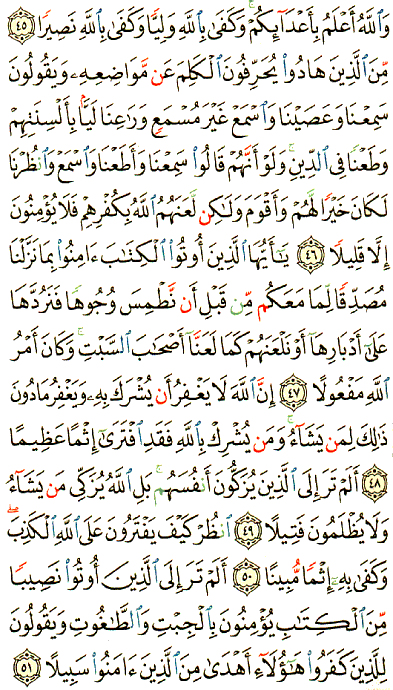 وَٱللَّهُ أَعْلَمُ بِأَعْدَآئِكُمْ ۚ وَكَفَىٰ بِٱللَّهِ وَلِيًّا وَكَفَىٰ بِٱللَّهِ نَصِيرًا ٤٥
مِّنَ ٱلَّذِينَ هَادُوا۟ يُحَرِّفُونَ ٱلْكَلِمَ عَن مَّوَاضِعِهِۦ وَيَقُولُونَ
سَمِعْنَا وَعَصَيْنَا وَٱسْمَعْ غَيْرَ مُسْمَعٍ وَرَٰعِنَا لَيًّۢا بِأَلْسِنَتِهِمْ
وَطَعْنًا فِى ٱلدِّينِ ۚ وَلَوْ أَنَّهُمْ قَالُوا۟ سَمِعْنَا وَأَطَعْنَا وَٱسْمَعْ وَٱنظُرْنَا
لَكَانَ خَيْرًا لَّهُمْ وَأَقْوَمَ وَلَٰكِن لَّعَنَهُمُ ٱللَّهُ بِكُفْرِهِمْ فَلَا يُؤْمِنُونَ
إِلَّا قَلِيلًا ٤٦ يَٰٓأَيُّهَا ٱلَّذِينَ أُوتُوا۟ ٱلْكِتَٰبَ ءَامِنُوا۟ بِمَا نَزَّلْنَا
مُصَدِّقًا لِّمَا مَعَكُم مِّن قَبْلِ أَن نَّطْمِسَ وُجُوهًا فَنَرُدَّهَا
عَلَىٰٓ أَدْبَارِهَآ أَوْ نَلْعَنَهُمْ كَمَا لَعَنَّآ أَصْحَٰبَ ٱلسَّبْتِ ۚ وَكَانَ أَمْرُ
ٱللَّهِ مَفْعُولًا ٤٧ إِنَّ ٱللَّهَ لَا يَغْفِرُ أَن يُشْرَكَ بِهِۦ وَيَغْفِرُ مَا دُونَ
ذَٰلِكَ لِمَن يَشَآءُ ۚ وَمَن يُشْرِكْ بِٱللَّهِ فَقَدِ ٱفْتَرَىٰٓ إِثْمًا عَظِيمًا
٤٨ أَلَمْ تَرَ إِلَى ٱلَّذِينَ يُزَكُّونَ أَنفُسَهُم ۚ بَلِ ٱللَّهُ يُزَكِّى مَن يَشَآءُ
وَلَا يُظْلَمُونَ فَتِيلًا ٤٩ ٱنظُرْ كَيْفَ يَفْتَرُونَ عَلَى ٱللَّهِ ٱلْكَذِبَ ۖ
وَكَفَىٰ بِهِۦٓ إِثْمًا مُّبِينًا ٥٠ أَلَمْ تَرَ إِلَى ٱلَّذِينَ أُوتُوا۟ نَصِيبًا
مِّنَ ٱلْكِتَٰبِ يُؤْمِنُونَ بِٱلْجِبْتِ وَٱلطَّٰغُوتِ وَيَقُولُونَ
لِلَّذِينَ كَفَرُوا۟ هَٰٓؤُلَآءِ أَهْدَىٰ مِنَ ٱلَّذِينَ ءَامَنُوا۟ سَبِيلًا ٥١